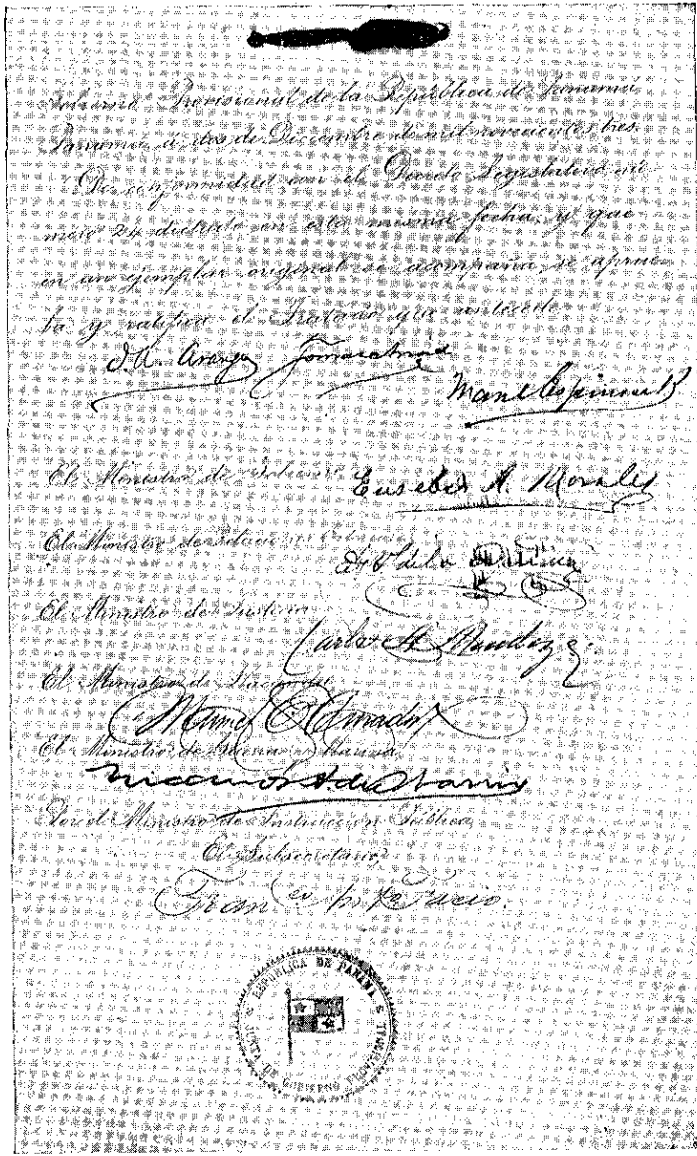 Gobierno Provisional de la República de Panamá
Panamá á dos de Diciembre de mil novecientos tres.
De conformidad con el Decreto Legislativo nú-
mero 24 dictado en esta misma fecha, y que
en un ejemplar original se acompaña, se aprue-
ba y ratifica el Tratado que antecede.
J. A. Arango Tomas Arias
Manuel Espinosa B
El Ministro de Gobierno Eusebio A. Morales
El Ministro de Relaciones Exteriores
F. V. de la Espriella
El Ministro de Justicia
Carlos A. Mendoza
El Ministro de Hacienda
Manuel E. Amador
El Ministro de Guerra y Marina
Nicanor A. de Obarrio
Por el Ministro de Instrucción Pública,
El Subsecretario,
Franco. Facio.
REPÚBLICA DE PANAMÁ
JUNTA DE GOBIERNO PROVISIONAL